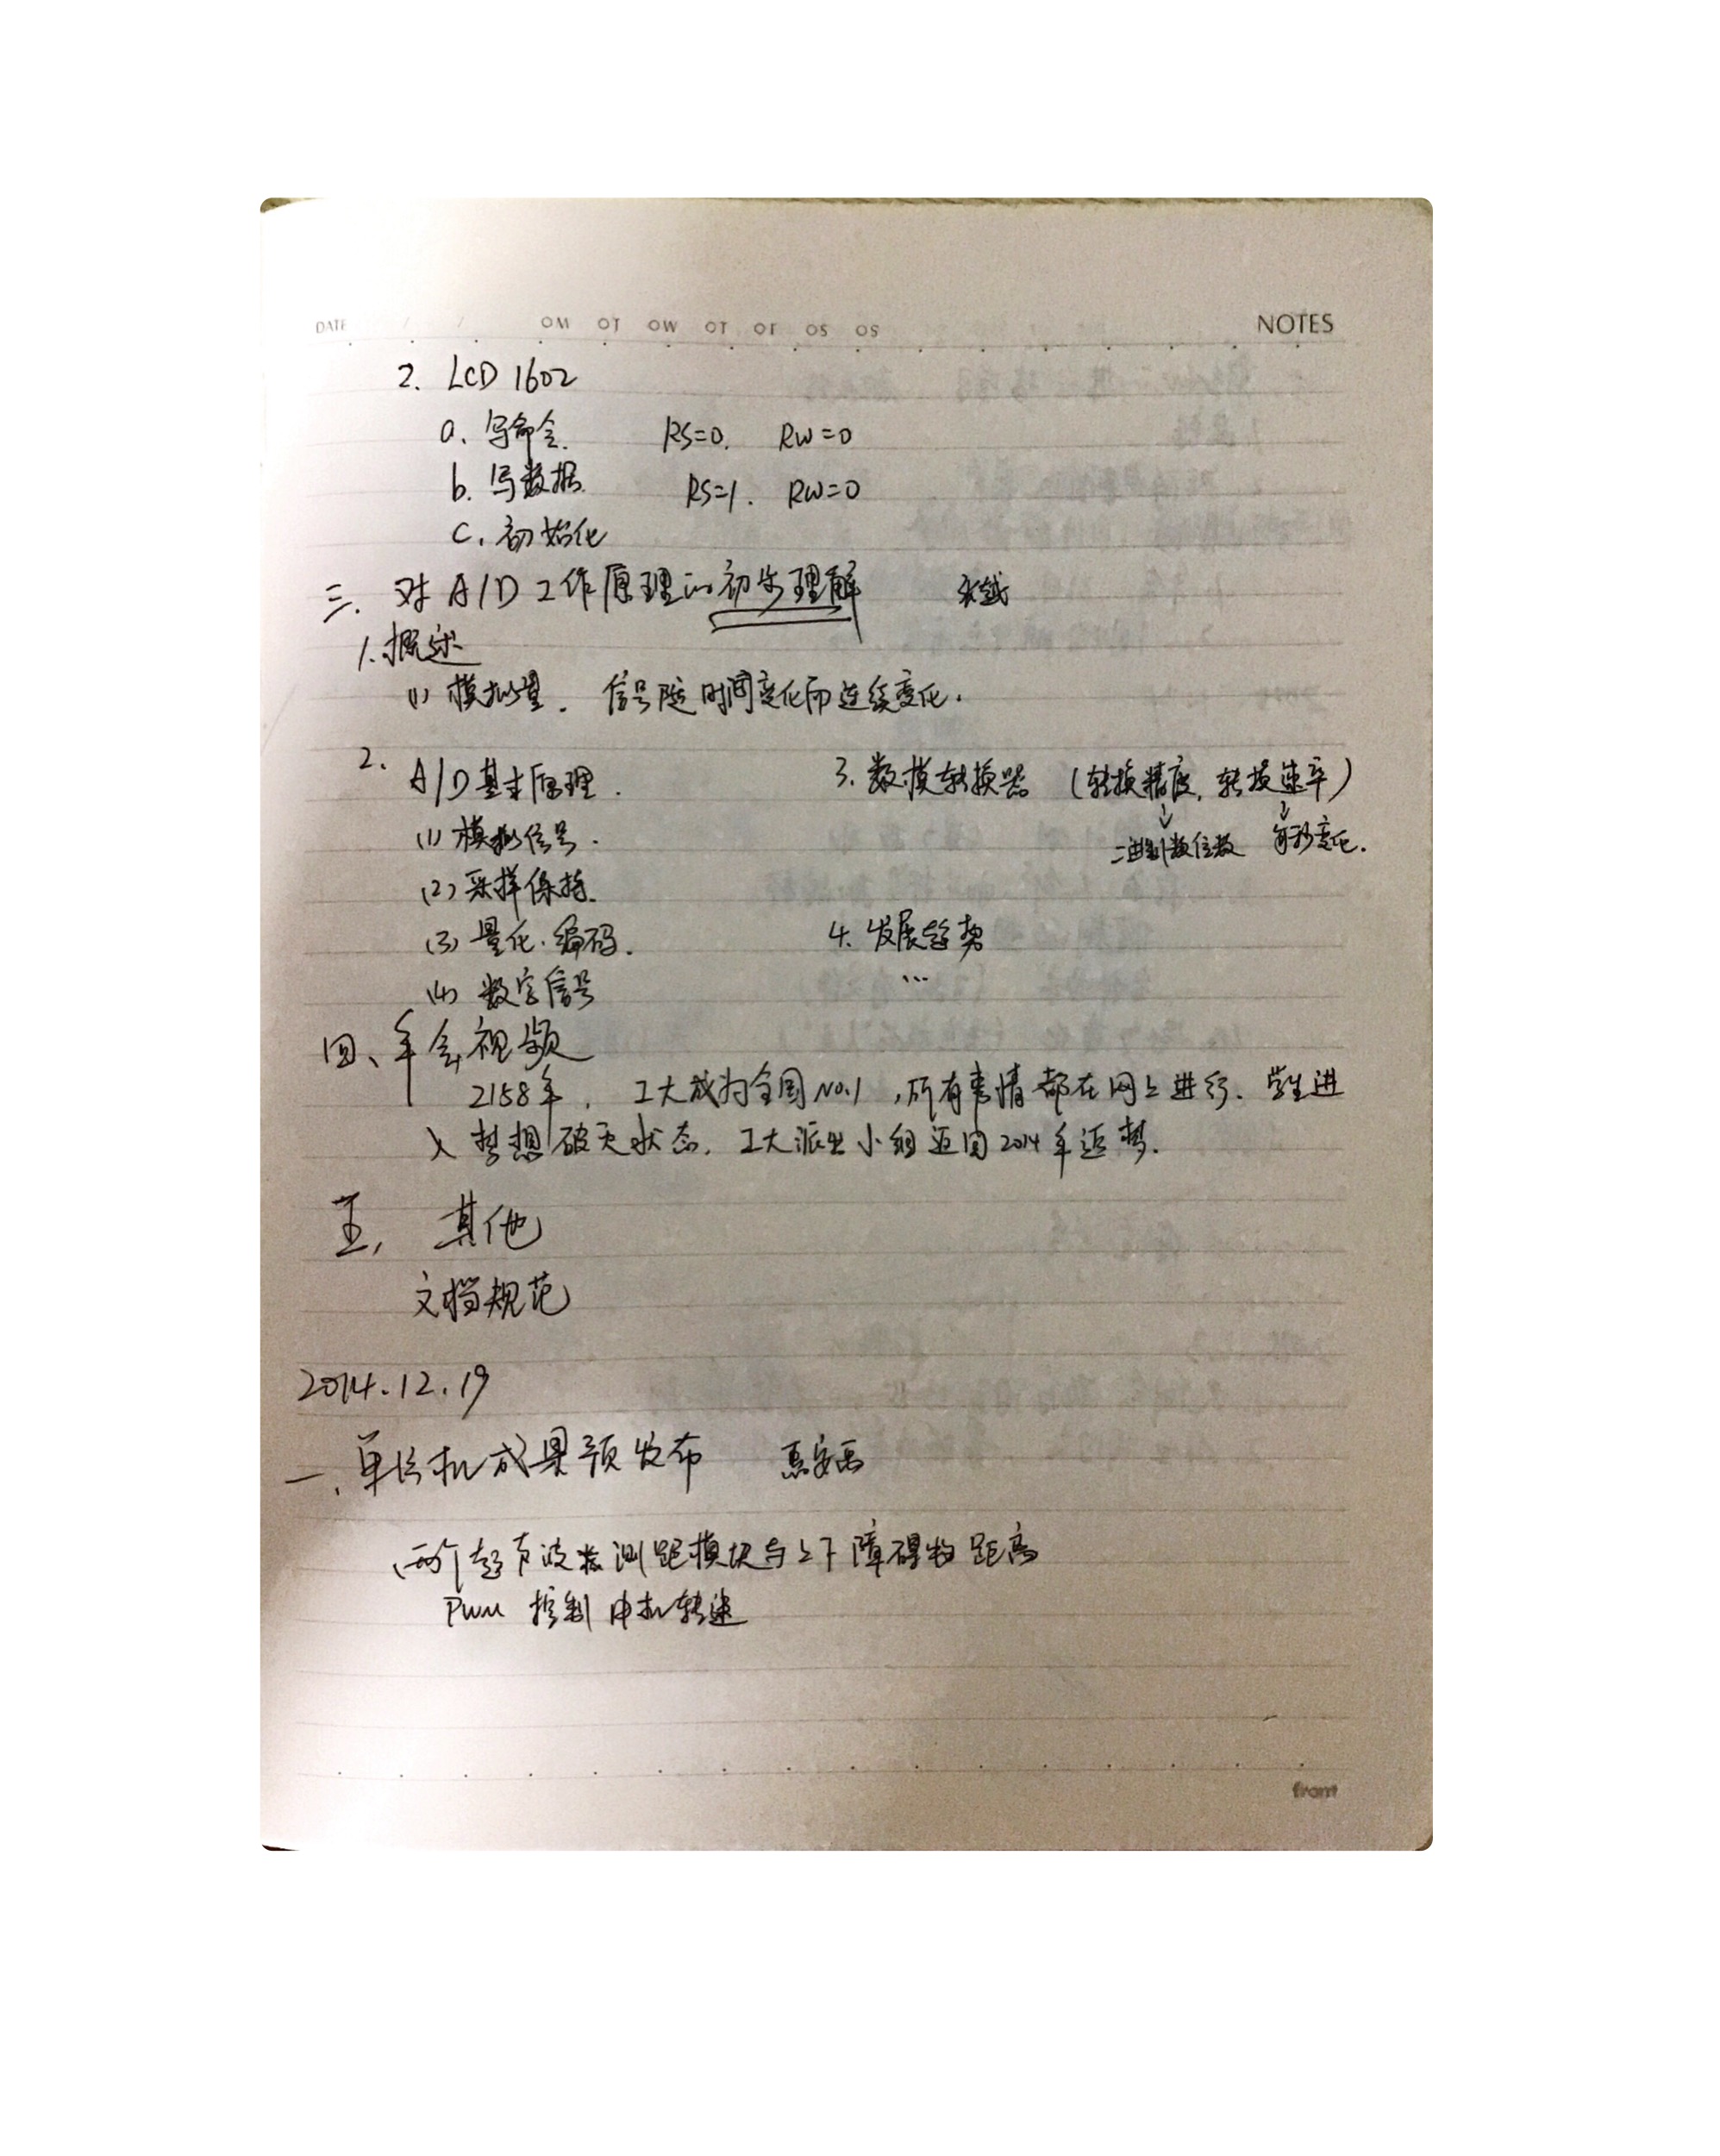 DATE / / OM OT OW OT OF OS OS NOTES
2. LCD 1602
a. 写命令. RS=0. RW=0
b. 写数据. RS=1. RW=0
c. 初始化
三. 对A/D工作原理的初步理解
1. 概述
(1) 模拟量. 信号随时间变化而连续变化.
2. A/D基本原理.
(1) 模拟信号.
(2) 采样保持.
(3) 量化.编码.
(4) 数字信号
3. 数模转换器 (转换精度, 转换速率)
↓ ↓
二进制数位数 每秒变化.
4. 发展趋势
...
四、年会视频
2158年, 工大成为全国No.1, 所有事情都在网上进行. 学生进
入梦想破灭状态. 工大派出小组返回2014年追梦.
五, 其他
文档规范
2014.12.19
一. 单片机成果预发布
两个超声波 测距模块与上下障碍物距离
PWM 控制电机转速
front